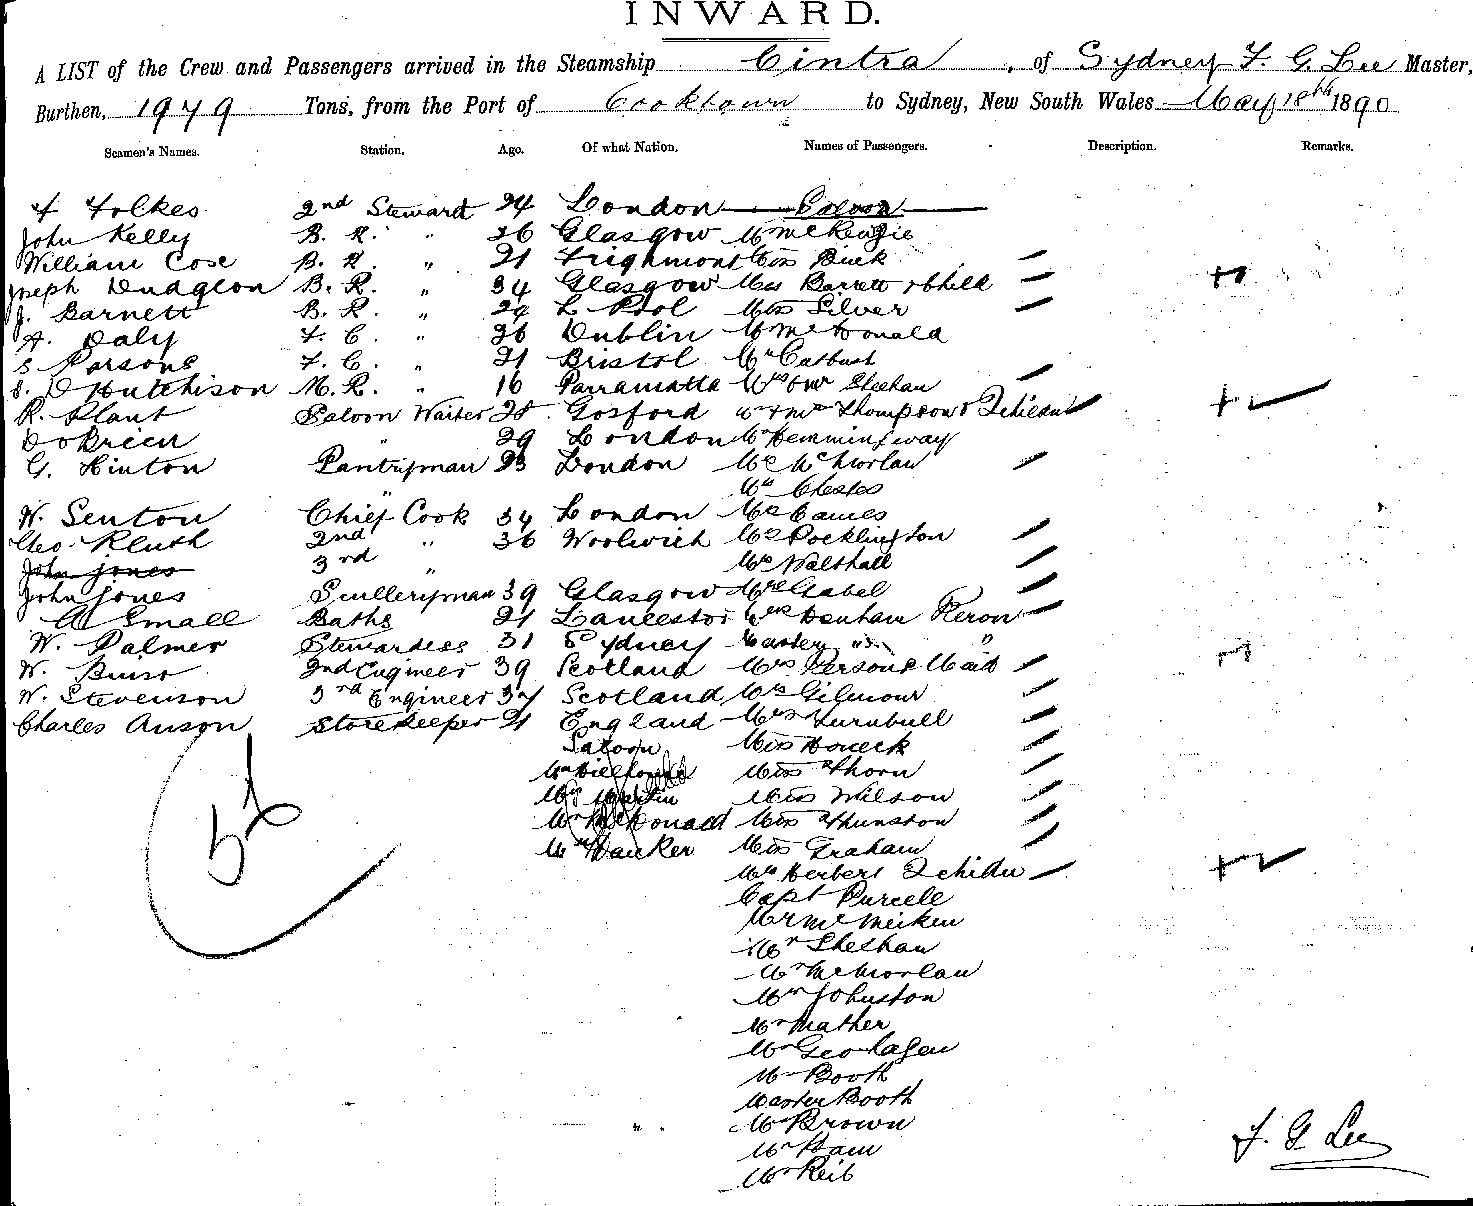 INWARD.
A LIST of the Crew and Passengers arrived in the Steamship Cintra, of Sydney F. G. Lee Master,
Burthen, 1979 Tons, from the Port of Cooktown to Sydney, New South Wales May 18th 1890
Seamen's Names. Station. Age. Of what Nation. Names of Passengers. Description. Remarks.
F Folkes 2nd Steward 24 London Saloon
John Kelly B. R. " 26 Glasgow Mr McKenzie
William Cose B. R. " 21 Miss Buck
Joseph Dudgeon B. R. " 34 Glasgow Mrs Barrett & child
J. Barnett B. R. " 29 L Pool Miss Silver
A. Daly F. C. " 26 Dublin Mr McDonald
S Parsons F. C. " 21 Bristol Mr
S. D Hutchison M. R. " 16 Parramatta Sheehan
R. Plant Saloon Waiter 28 Gosford Mr & Mrs Thompson & 2 children
D O'Brien " 29 London Mr Hemmingway
G. Hinton Pantryman 23 London McMorlan
Mr Chester
W. Senton Chief Cook 34 London Eames
Geo. Kluth 2nd " 36 Woolwich Pocklington
John Jones 3rd " Walshall
John Jones Sculleryman 39 Glasgow Mrs Isabel
A Small Baths 21 Lancester Denham Keron
W. Palmer Stewardess 31 Sydney Master " "
W. Buist 2nd Engineer 39 Scotland Mrs Persons Maid
W. Stevenson 3rd Engineer 34 Scotland Mrs Gilmour
Charles Anson Storekeeper 21 England Mrs Turnbull
Saloon Miss Honeck
Miss Thorn
Martin Miss Wilson
Mr McDonald Miss Thunston
52 Mr Hauker Miss Graham
Mrs Herbert 2 children
Capt Purcell
Mr McMeiken
Mr Sheehan
Mr McMorlan
Mr Johnston
Mr Mather
Mr Geohagen
Mr Booth
Master Booth
Mr Brown
Mr Ham
Mr Reib
F. G. Lee